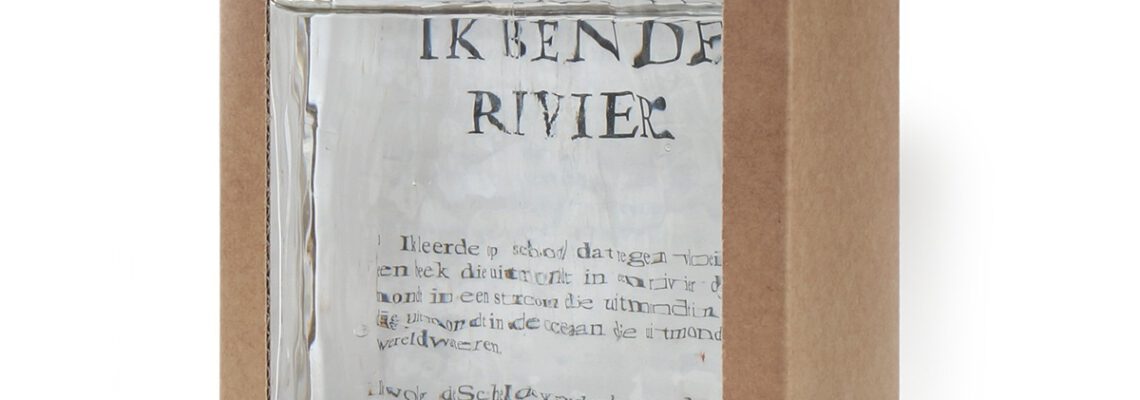 IK BEN DE
RIVIER
Ik leerde op school dat regen
een beek die uitmondt in een rivier
mondt in een stroom die uitmondt in
die uitmondt in de oceaan die uitmond
wereldwateren.